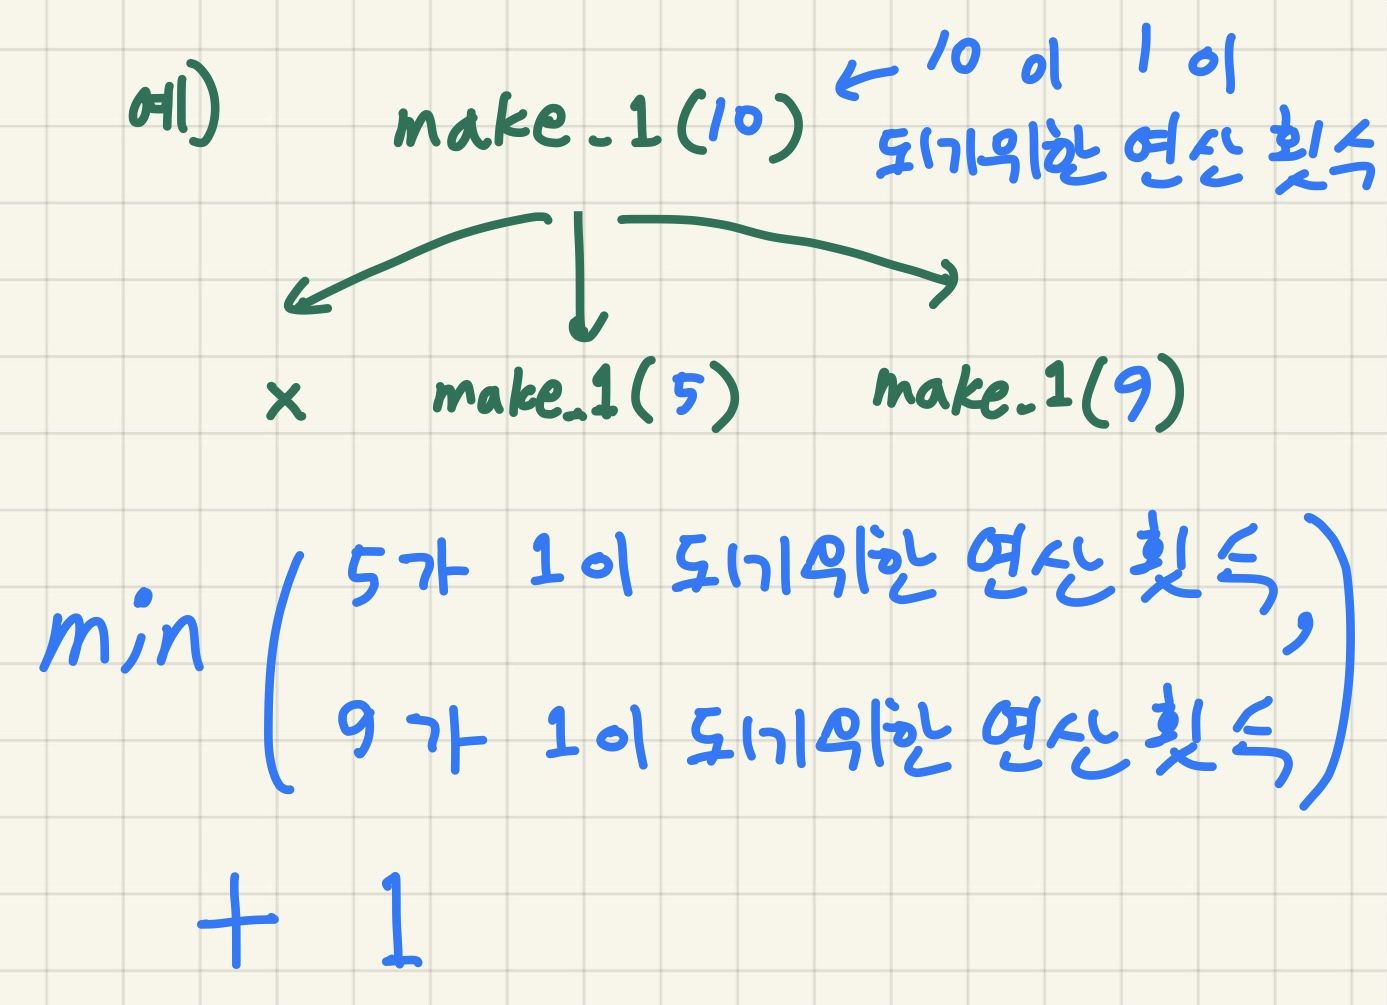 예) make_1(10) ← 10이 1이
되기위한 연산 횟수
x make_1(5) make_1(9)
min ( 5가 1이 되기위한 연산 횟수,
9가 1이 되기위한 연산 횟수 )
+ 1